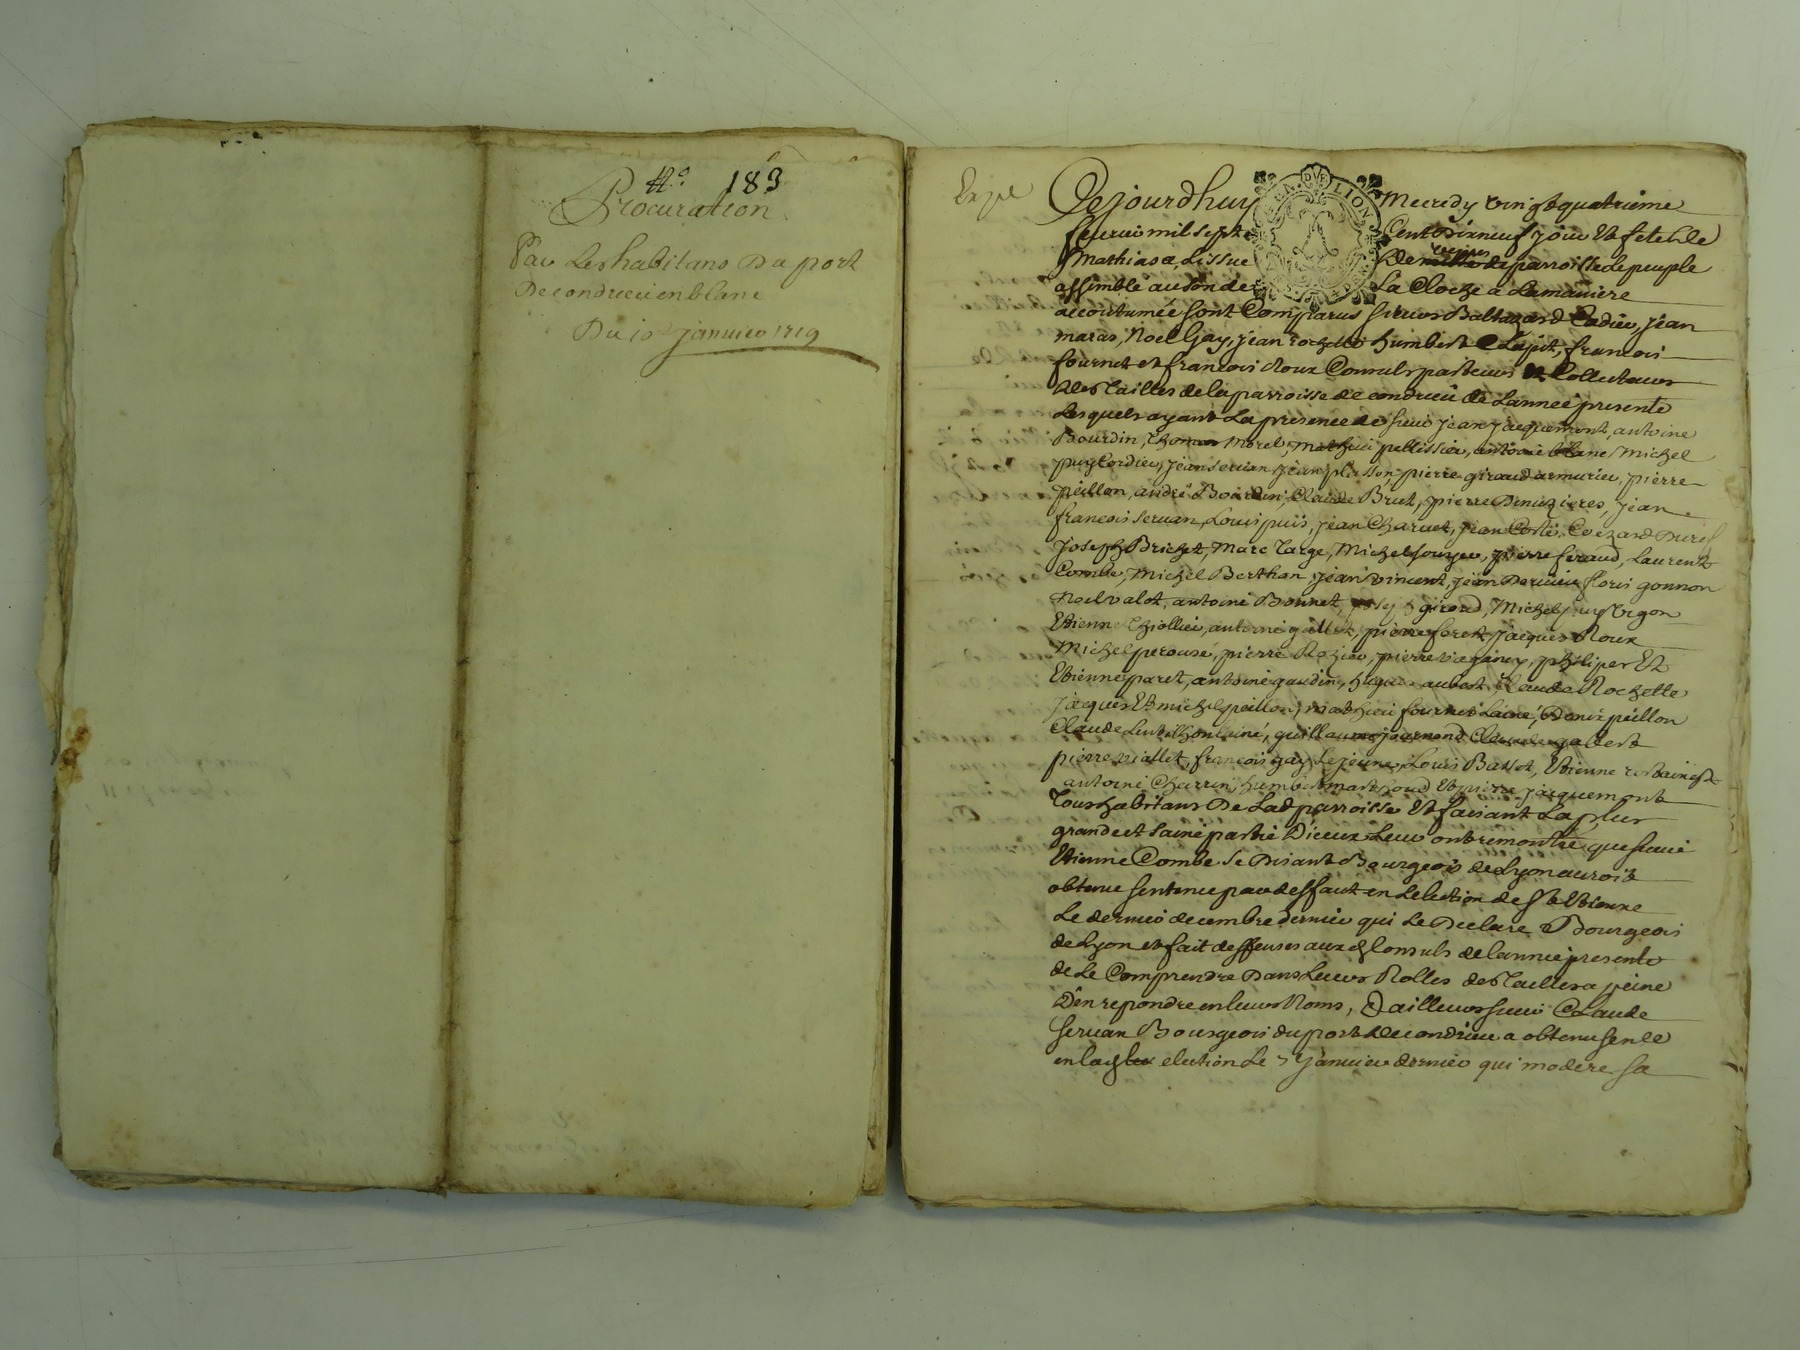 No. 183
Procuration
Par Les habitans Du port
De condrieu en blanc
Du 10 janvier 1719
Expe
Cejourdhuy Mecredy vingt quatrieme
fevrier mil sept Cent Dixneuf jour Et fete de
St Mathias a Lissue De vespre de parroisse Le peuple
GEN. DE LION
assemblé au son de La Cloche a La maniere
accoutumée sont Comparus sieurs Baltazard Cadier, jean
maras, Noel Gay, jean rochette humbert Chapit, francois
fournet et francois Roux Consuls parteurs et Collecteurs
des Tailles de la parroisse de condrieu de Lannee presente
Lesquels ayant La presence de sieur jean jacquemont, antoine
Bourdin, Thomas Morel, Mathieu pellissier, antoine blanc, Michel
puy Cordier, jean servan, jean plasson, pierre giraud armurier, pierre
peillon, andré Bourdin, Claude Brut, pierre Denuzieres, jean
francois servan, Louis puis, jean Charvet, jean Coste,
Joseph Brichet, Marc Targe, Michel pierre feraud, Laurent
Combe, Michel Berthan, jean vincent, jean floris gonnon
Noel valot, antoine Bonnet, giraud, Michel
Etienne Thiollier, antoine gallet, pierre foret, jacques Roux
Michel perouse, pierre Rozier, pierre philiper Et
Etienne paret, antoine gaudin, hugues aubert, Claude Rochette
jacques Et michel peillon, mathieu fournet Lainé, Denis peillon
Claude Lainé, guillaume journond Claude galbert
pierre viallet, francois gay Le jeune, Louis Bassot, Etienne
antoine Charrin, humbert marthoud Et pierre jacquemont
Tous habitans De Lad parroisse Et faisant La plus
grande et saine partie D'iceux Leur ont remontré que sieur
Etienne Combe Se Disant Bourgeois de Lyon auroit
obtenue sentence par deffaut en Lelection de St Etienne
Le dernier decembre dernier qui Le Declare Bourgeois
de Lyon et fait deffenses aux ds Consuls de lannée presente
de Le Comprendre Dans Leurs Rolles des Tailles a peine
D'en repondre en leurs Noms, D'ailleurs sieur Claude
servan Bourgeois du port de condrieu a obtenu sence
en lad election Le 7 janvier dernier qui modere sa